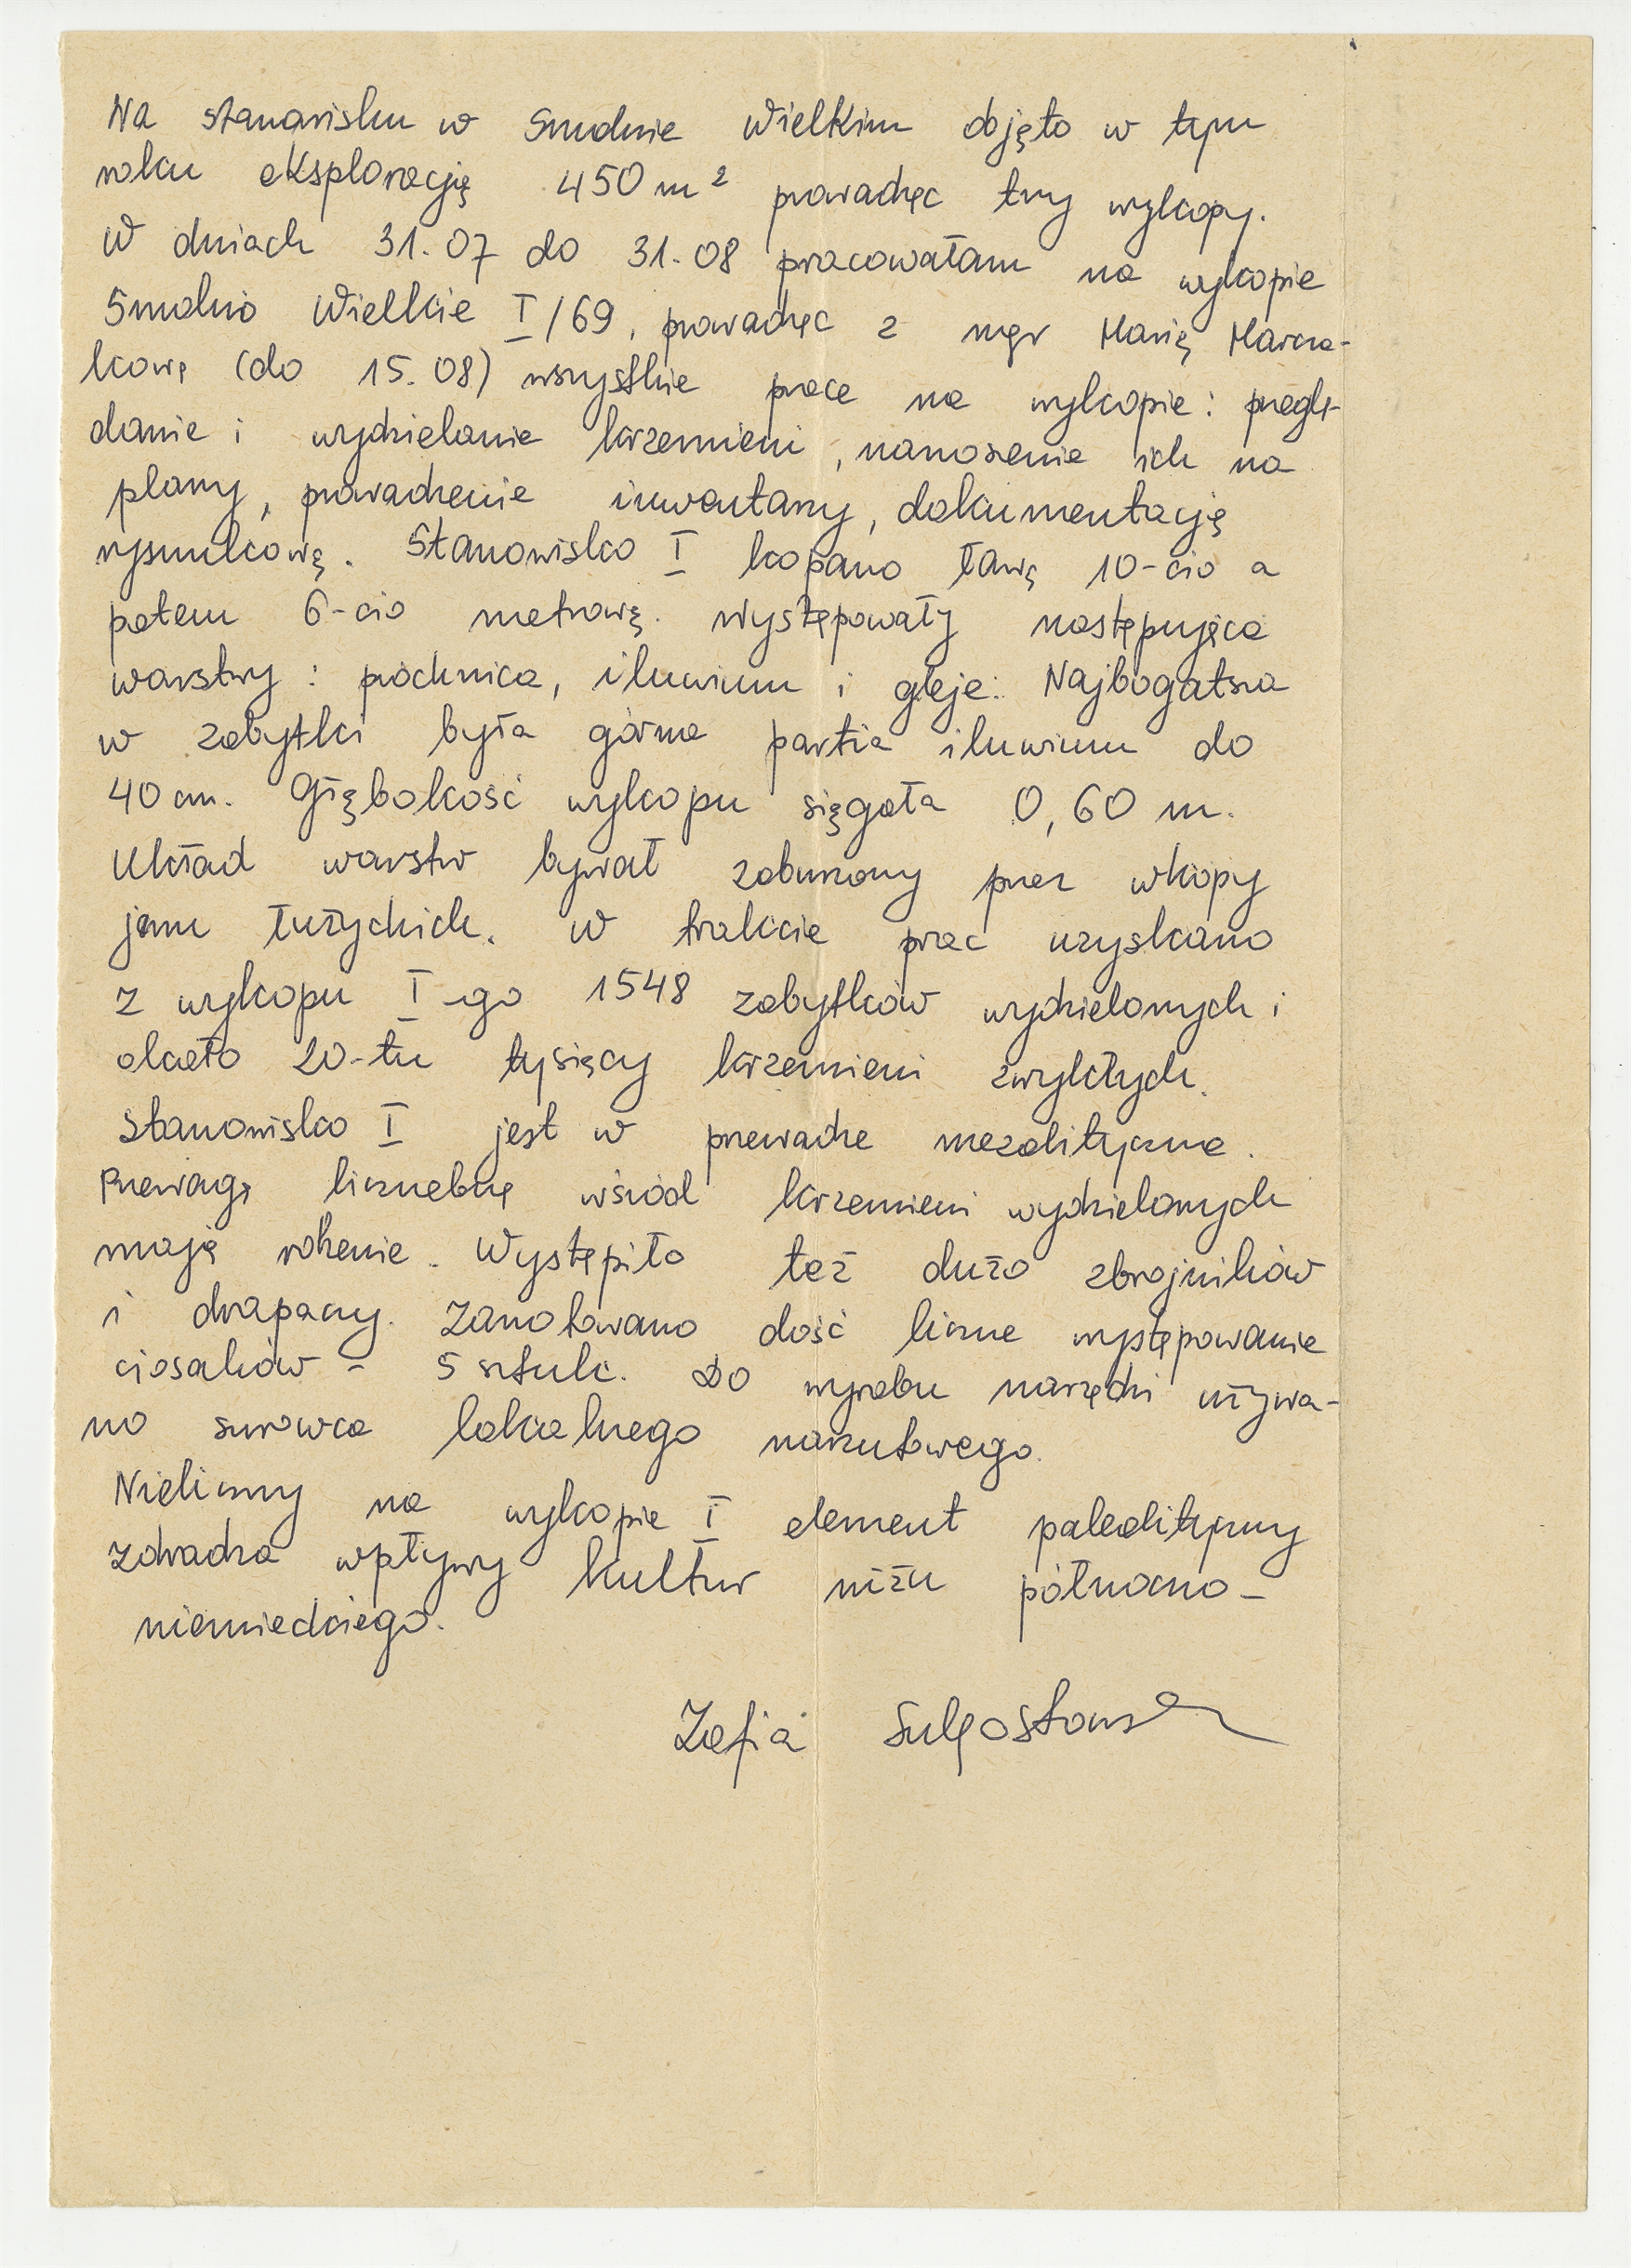 Na stanowisku w Smolnie Wielkim objęto w tym
roku eksploracją 450 m² prowadząc trzy wykopy.
W dniach 31.07 do 31.08 pracowałam na wykopie
Smolno Wielkie I/69, prowadząc z mgr Marią Marcza-
kową (do 15.08) wszystkie prace na wykopie: przeglą-
danie i wydzielanie krzemieni, nanoszenie ich na
plany, prowadzenie inwentarzy, dokumentację
rysunkową. Stanowisko I kopano ławą 10-cio a
potem 6-cio metrową. Występowały następujące
warstwy: próchnica, iluwium i gleje. Najbogatsza
w zabytki była górna partia iluwium do
40 cm. Głębokość wykopu sięgała 0,60 m.
Układ warstw bywał zaburzony przez wkopy
jam łużyckich. W trakcie prac uzyskano
z wykopu I-go 1548 zabytków wydzielonych i
około 20-tu tysięcy krzemieni zwykłych.
Stanowisko I jest w przewadze mezolityczne.
Przewagę liczebną wśród krzemieni wydzielonych
mają rdzenie. Wystąpiło też dużo zbrojników
i drapaczy. Zanotowano dość liczne występowanie
ciosaków - 5 sztuk. Do wyrobu narzędzi używa-
no surowca lokalnego narzutowego.
Nieliczny na wykopie I element paleolityczny
zdradza wpływy kultur niżu północno-
niemieckiego.
Zofia Sulgostowska